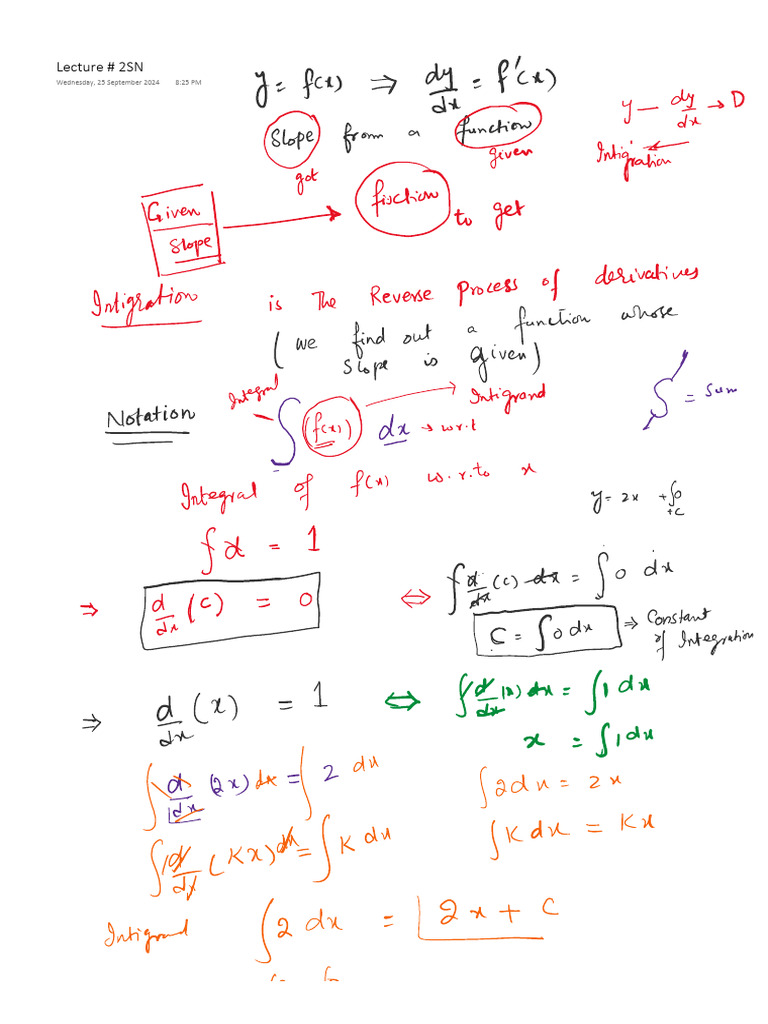 Lecture # 2SN
Wednesday, 25 September 2024 8:25 PM
y = f(x) ⇒ dy/dx = f'(x)
Slope from a function
got given
y — dy/dx → D
Intigration ←
Given
Slope
fuction to get
Intigration is The Reverse Process of derivatives
(we find out a function whose
slope is given)
Integral
Notation ∫ (f(x)) dx → w.r.t
Intigrand
∫ = Sum
Integral of f(x) w.r.to x
y = 2x + ∫0
+c
∫x = 1
⇒ d/dx (c) = 0 ⇔ ∫ d/dx (c) dx = ∫ 0 dx
C = ∫ 0 dx ⇒ Constant
of Integration
⇒ d/dx (x) = 1 ⇔ ∫ d/dx (x) dx = ∫ 1 dx
x = ∫ 1 dx
∫ d/dx (2x) dx = ∫ 2 dx
∫ 2 dx = 2x
∫ d/dx (Kx) dx = ∫ K dx
∫ K dx = Kx
Intigrand ∫ 2 dx = 2x + c